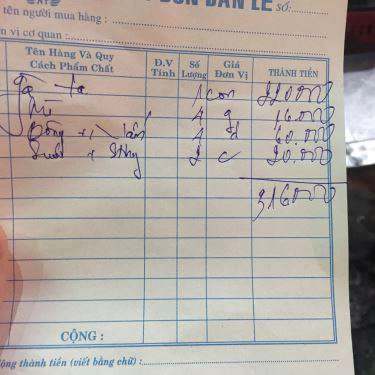 ĐƠN BÁN LẺ SỐ:
tên người mua hàng :
n vị cơ quan :
Tên Hàng Và Quy Cách Phẩm Chất Đ.V Tính Số Lượng Giá Đơn Vị THÀNH TIỀN
Gà ta 1 con 220000
Mì 4 g 16.000
1 60.000
2 c 20.000
316000
CỘNG :
Cộng thành tiền (viết bằng chữ) :